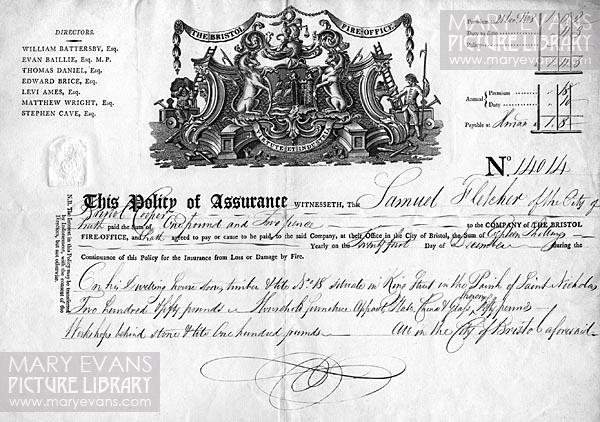 MARY EVANS
PICTURE LIBRARY
DIRECTORS.
WILLIAM BATTERSBY, Esq.
EVAN BAILLIE, Esq. M. P.
THOMAS DANIEL, Esq.
EDWARD BRICE, Esq.
LEVI AMES, Esq.
MATTHEW WRIGHT, Esq.
STEPHEN CAVE, Esq.
THE BRISTOL FIRE-OFFICE
Premium
Duty to
Policy
Annual Premium
Duty
Payable at
No. 14014
This Policy of Assurance WITNESSETH, That Samuel Fletcher of the City of
Bristol Cooper
hath paid the Sum of One pound and Two pence to the COMPANY of THE BRISTOL
FIRE-OFFICE, and hath agreed to pay or cause to be paid, to the said Company, at their Office in the City of Bristol, the Sum of
Yearly on the Day of December during the
Continuance of this Policy for the Insurance from Loss or Damage by Fire.
On his Dwelling house stone, timber & tile No. 18 situate in King Street in the Parish of Saint Nicholas
Two hundred & fifty pounds Household furniture Apparel Plate China & Glass therein fifty pounds
Workshops behind stone & tile One hundred pounds All in the City of Bristol aforesaid
N.B. The Interest in this Policy may be transferred by Indorsement, with the consent of the Directors, but not otherwise.
MARY EVANS
PICTURE LIBRARY
www.maryevans.com